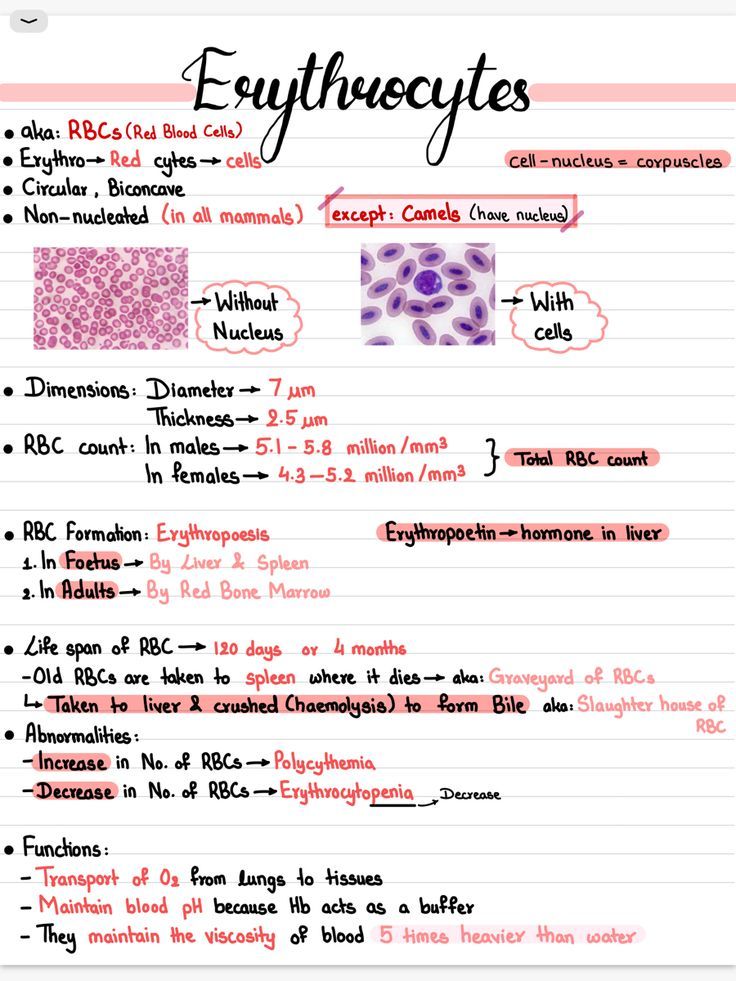 Erythrocytes
• aka: RBCs (Red Blood Cells)
• Erythro → Red cytes → cells
cell-nucleus = corpuscles
• Circular, Biconcave
• Non-nucleated (in all mammals) except: Camels (have nucleus)
→ Without Nucleus
→ With cells
• Dimensions: Diameter → 7 μm
Thickness → 2.5 μm
• RBC count: In males → 5.1 - 5.8 million/mm³
In females → 4.3 - 5.2 million/mm³
} Total RBC count
• RBC Formation: Erythropoesis
Erythropoetin → hormone in liver
1. In Foetus → By Liver & Spleen
2. In Adults → By Red Bone Marrow
• Life span of RBC → 120 days or 4 months
- Old RBCs are taken to spleen where it dies → aka: Graveyard of RBCs
↳ Taken to liver & crushed (haemolysis) to form Bile aka: Slaughter house of
RBC
• Abnormalities:
- Increase in No. of RBCs → Polycythemia
- Decrease in No. of RBCs → Erythrocytopenia → Decrease
• Functions:
- Transport of O₂ from lungs to tissues
- Maintain blood pH because Hb acts as a buffer
- They maintain the viscosity of blood 5 times heavier than water